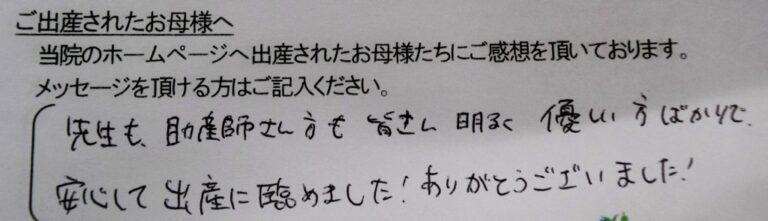 ご出産されたお母様へ
当院のホームページへ出産されたお母様たちにご感想を頂いております。
メッセージを頂ける方はご記入ください。
先生も、助産師さん方も皆さん明るく優しい方ばかりで、
安心して出産に臨めました!ありがとうございました!